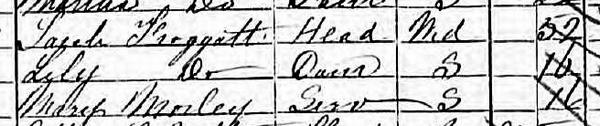 Do
Sarah Froggatt Head Md 32
Lily Do Daur S 10
Mary Morley Serv S 16